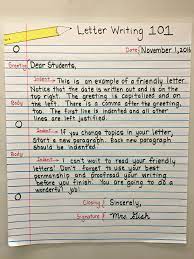 Letter Writing 101
Date November 1, 2016
Greeting Dear Students,
Indent→ This is an example of a friendly letter.
Notice that the date is written out and is on
the right. The greeting is capitalized on
the left. There is a comma after the greeting,
too. The first line is indented and all other
lines are on the left.
Body Indent→ If you change topics in your letter,
start a new paragraph. Each new paragraph
should be indented.
Body Indent→ I can't wait to read your friendly
letters! Don't forget to use your best
penmanship and proofread your writing
before you finish. You are going to do a
wonderful job!
Closing Sincerely,
Signature Mrs.